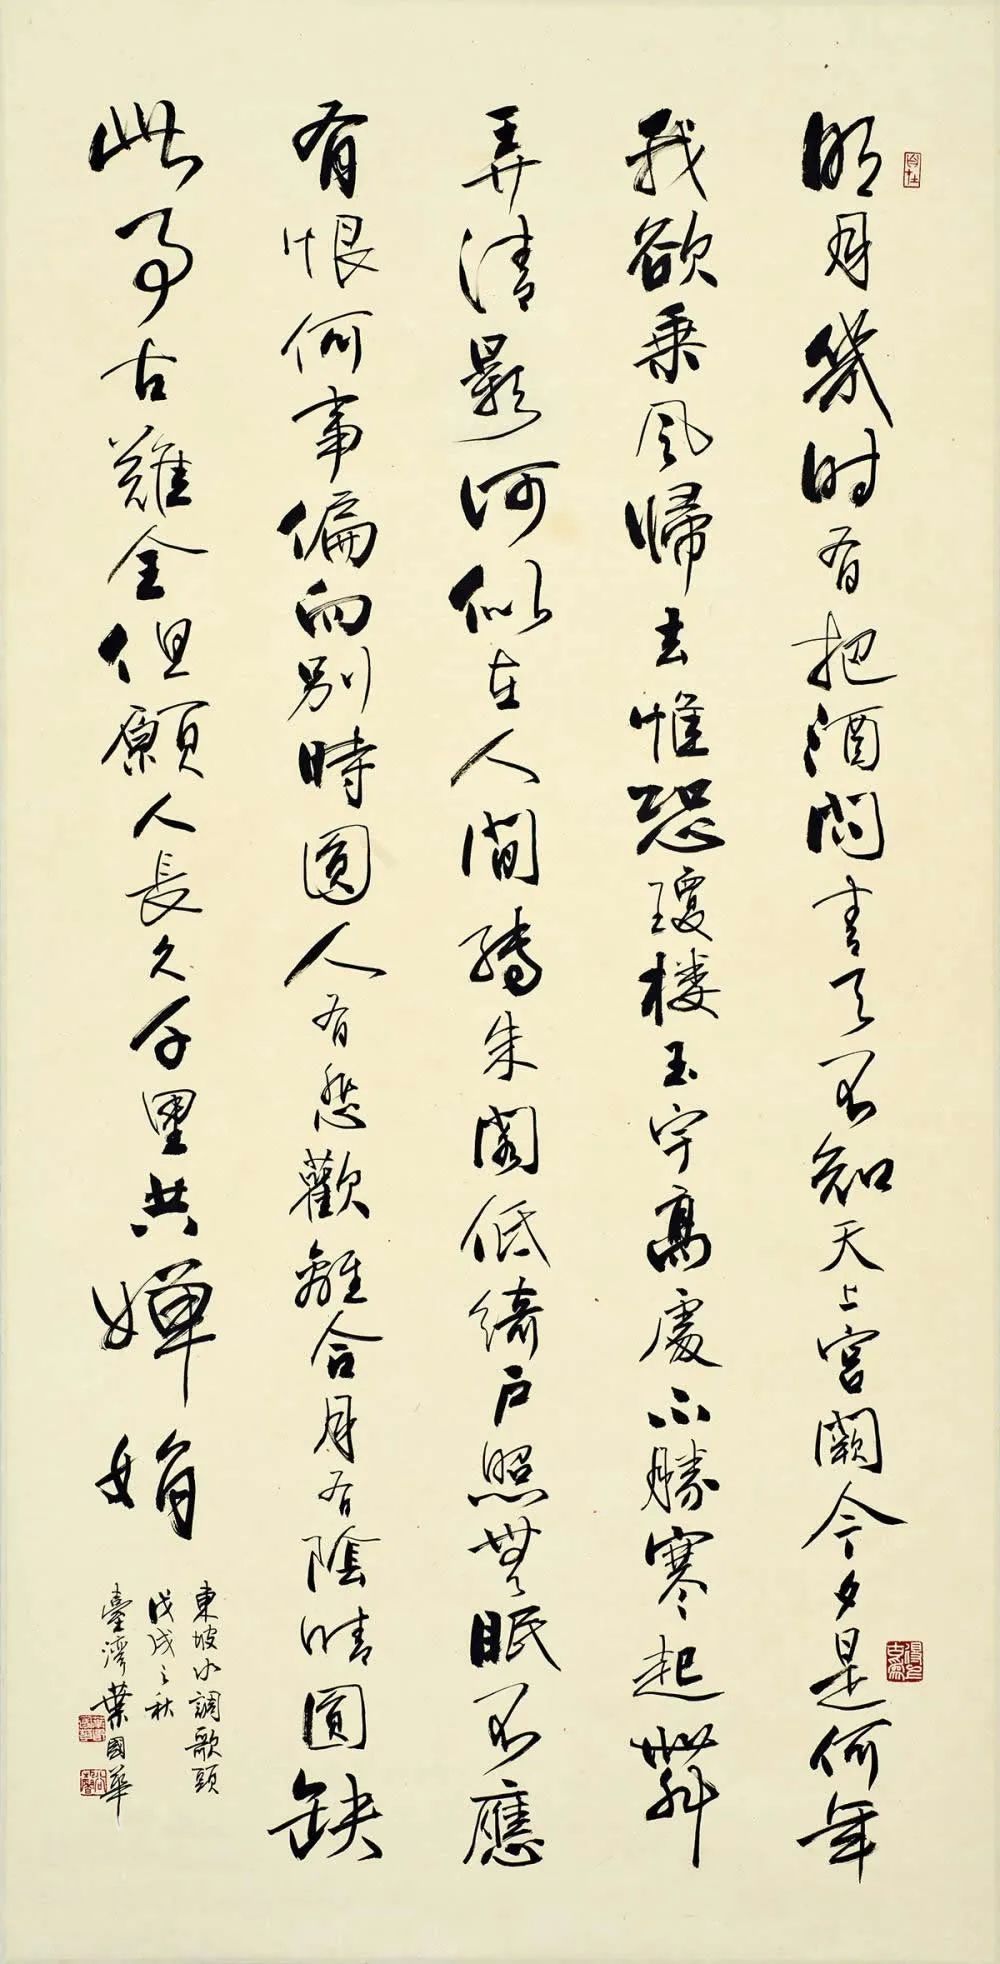 明月幾时有把酒問青天不知天上宮闕今夕是何年
我欲乘风歸去惟恐瓊楼玉宇高處不勝寒起舞
弄清影何似在人間轉朱閣低綺户照無眠不應
有恨何事偏向别時圓人有悲歡離合月有陰晴圓缺
此事古難全但願人長久千里共嬋娟
東坡水調歌頭
戊戌之秋
臺灣葉國華